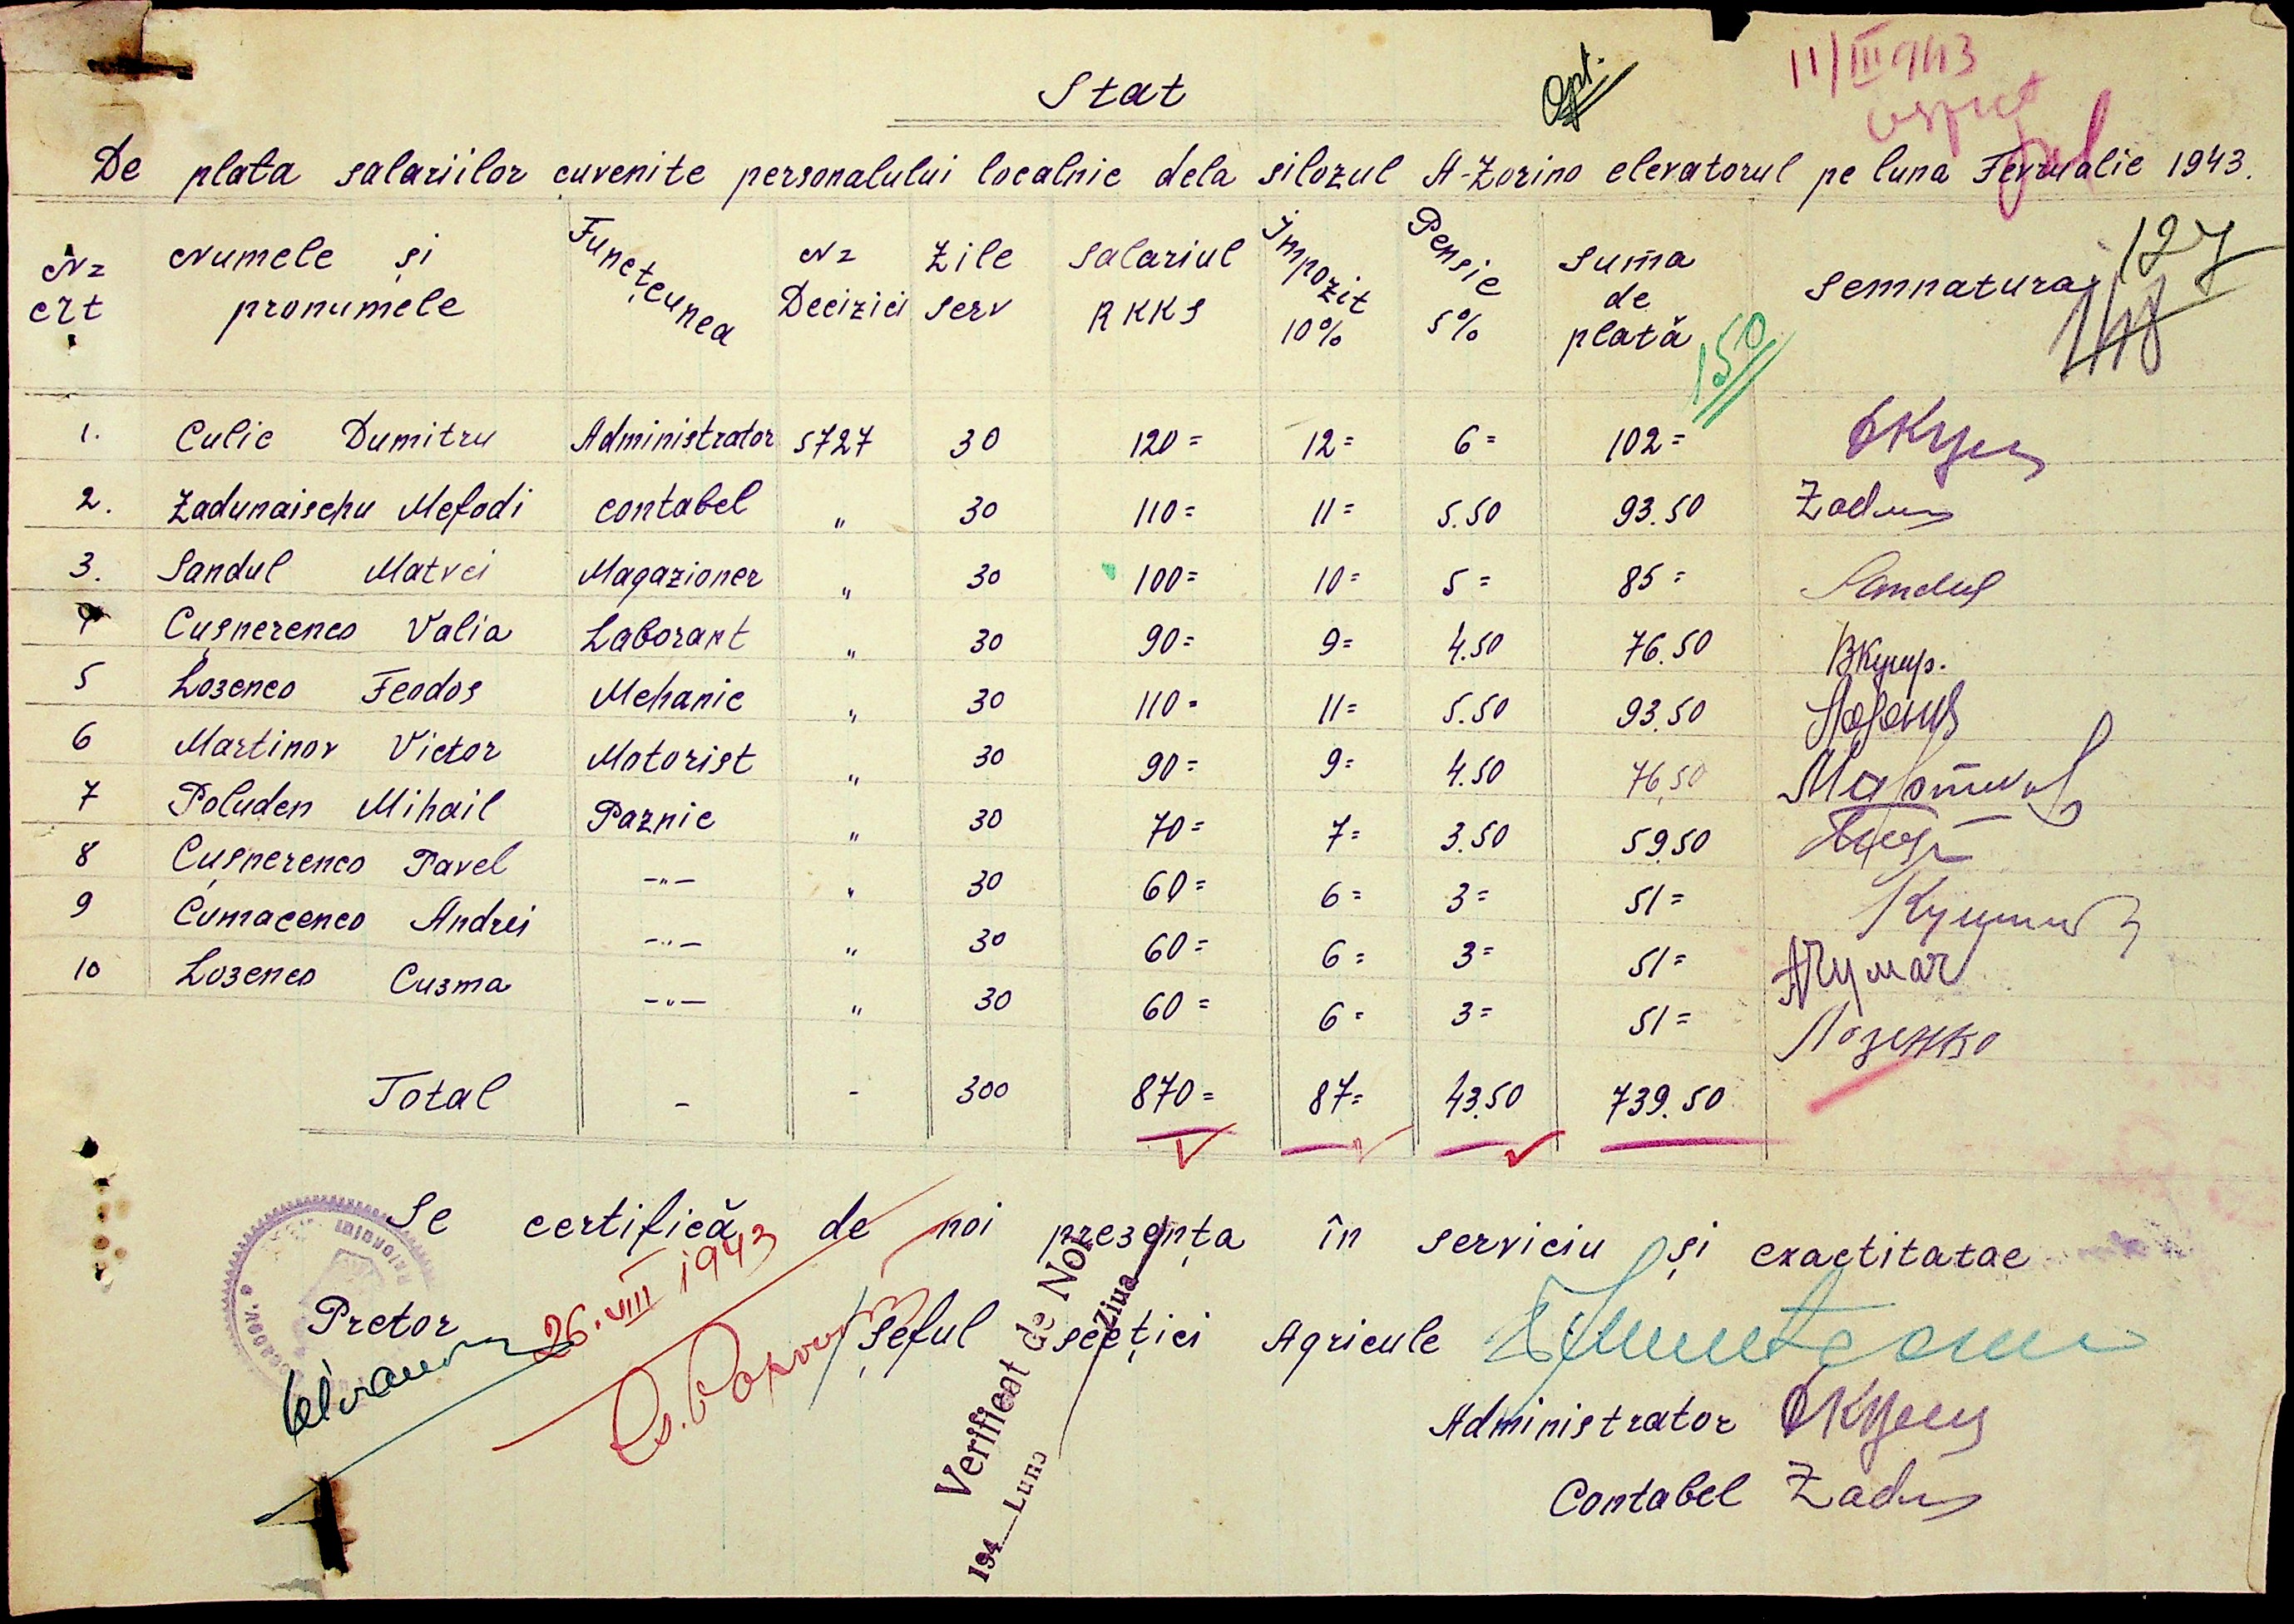 11/III 943
Stat
De plata salariilor cuvenite personalului localnic dela silozul A-Zorino elevatorul pe luna Fevrualie 1943.
Nr crt Numele și pronumele Funcțeunea Nr Deciziei Zile serv Salariul RKKS Impozit 10% Pensie 5% Suma de plată Semnatura
127
148
150
1. Culic Dumitru Administrator 5727 30 120= 12= 6= 102=
2. Zadunaischu Mefodi contabel " 30 110= 11= 5.50 93.50 Zadun
3. Sandul Matvei Magazioner " 30 100= 10= 5= 85= Sandul
4 Cușnerenco Valia Laborant " 30 90= 9= 4.50 76.50 ВКушр.
5 Lozenco Feodos Mehanic " 30 110= 11= 5.50 93.50
6 Martinov Victor Motorist " 30 90= 9= 4.50 76,50 Мартинов
7 Poluden Mihail Paznic " 30 70= 7= 3.50 59.50
8 Cușnerenco Pavel -"- " 30 60= 6= 3= 51=
9 Cumacenco Andrei -"- " 30 60= 6= 3= 51= АЧумач
10 Lozenco Cuzma -"- " 30 60= 6= 3= 51= Лозенко
Total - - 300 870= 87= 43.50 739.50
Se certifică de noi prezența în serviciu și exactitatae
Pretor
26.VIII 1943
Șeful secției Agricule
Verificat de Noi
194__Luna__Ziua
Administrator
Contabel Zadun